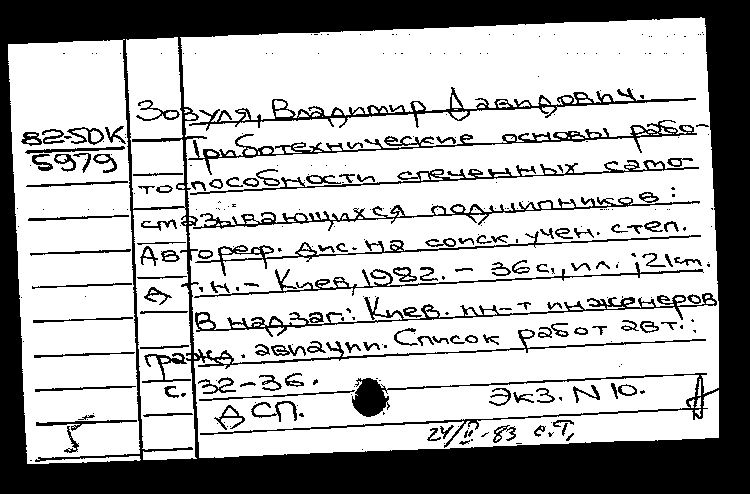 Зозуля, Владимир Давидович.
82-5DK
5979
Триботехнические основы рабо-
тоспособности спеченных само-
смазывающихся подшипников :
Автореф. дис. на соиск. учен. степ.
Д т.н. - Киев, 1982. - 36 с., ил. ; 21 см.
В надзаг.: Киев. ин-т инженеров
гражд. авиации. Список работ авт.:
с. 32-36.
ДСП. Экз. N 10.
24/II-83